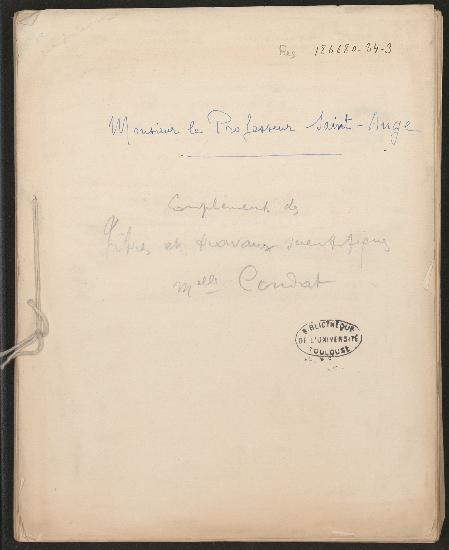 Res 186680-34-3
Monsieur le Professeur Saint-Ange
Complément des
Titres et travaux scientifiques
Melle Condat
BIBLIOTHÈQUE
DE L'UNIVERSITÉ
TOULOUSE